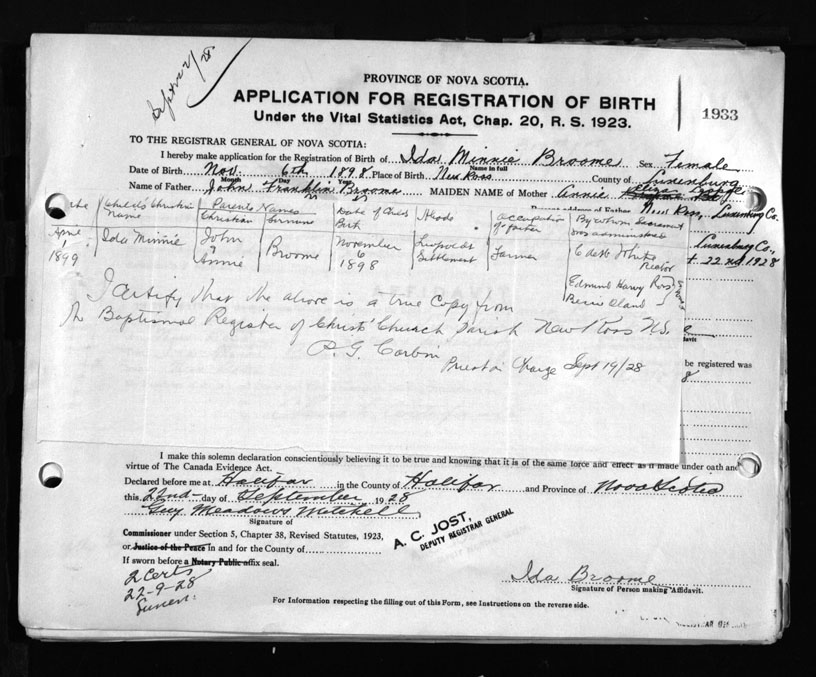 Sept 22/28
PROVINCE OF NOVA SCOTIA.
APPLICATION FOR REGISTRATION OF BIRTH
Under the Vital Statistics Act, Chap. 20, R. S. 1923.
1933
TO THE REGISTRAR GENERAL OF NOVA SCOTIA:
I hereby make application for the Registration of Birth of Ida Minnie Broome Sex Female
Name in full
Date of Birth Nov. 6th 1898 Place of Birth New Ross County of Lunenburg
Month Day Year
Name of Father John Franklin Broome MAIDEN NAME of Mother Annie Eliza
of Father New Ross, Lunenburg Co.
Child's Christian Name Parents Names Date of Child Birth Abode Occupation of father By whom Sacrament was administered
Christian Surname
April 1 1899 Ida Minnie John & Annie Broome November 6 1898 Leopold's Settlement Farmer White Rector
Edmund Harry Ross
Lunenburg Co.,
22nd 1928
I certify that the above is a true Copy from
the Baptismal Register of Christ Church Parish New Ross N.S.
P. G. Corbin
Priest in Charge Sept 19/28
be registered was
I make this solemn declaration conscientiously believing it to be true and knowing that it is of the same force and effect as if made under oath and
virtue of The Canada Evidence Act.
Declared before me at Halifax in the County of Halifax and Province of Nova Scotia
this 22nd day of September 1928
Guy Meadows Mitchell
Signature of
Commissioner under Section 5, Chapter 38, Revised Statutes, 1923,
or Justice of the Peace in and for the County of
If sworn before a Notary Public affix seal.
A. C. JOST,
DEPUTY REGISTRAR GENERAL
2 Certs
22-9-28
Ida Broome
Signature of Person making Affidavit.
For Information respecting the filling out of this Form, see Instructions on the reverse side.